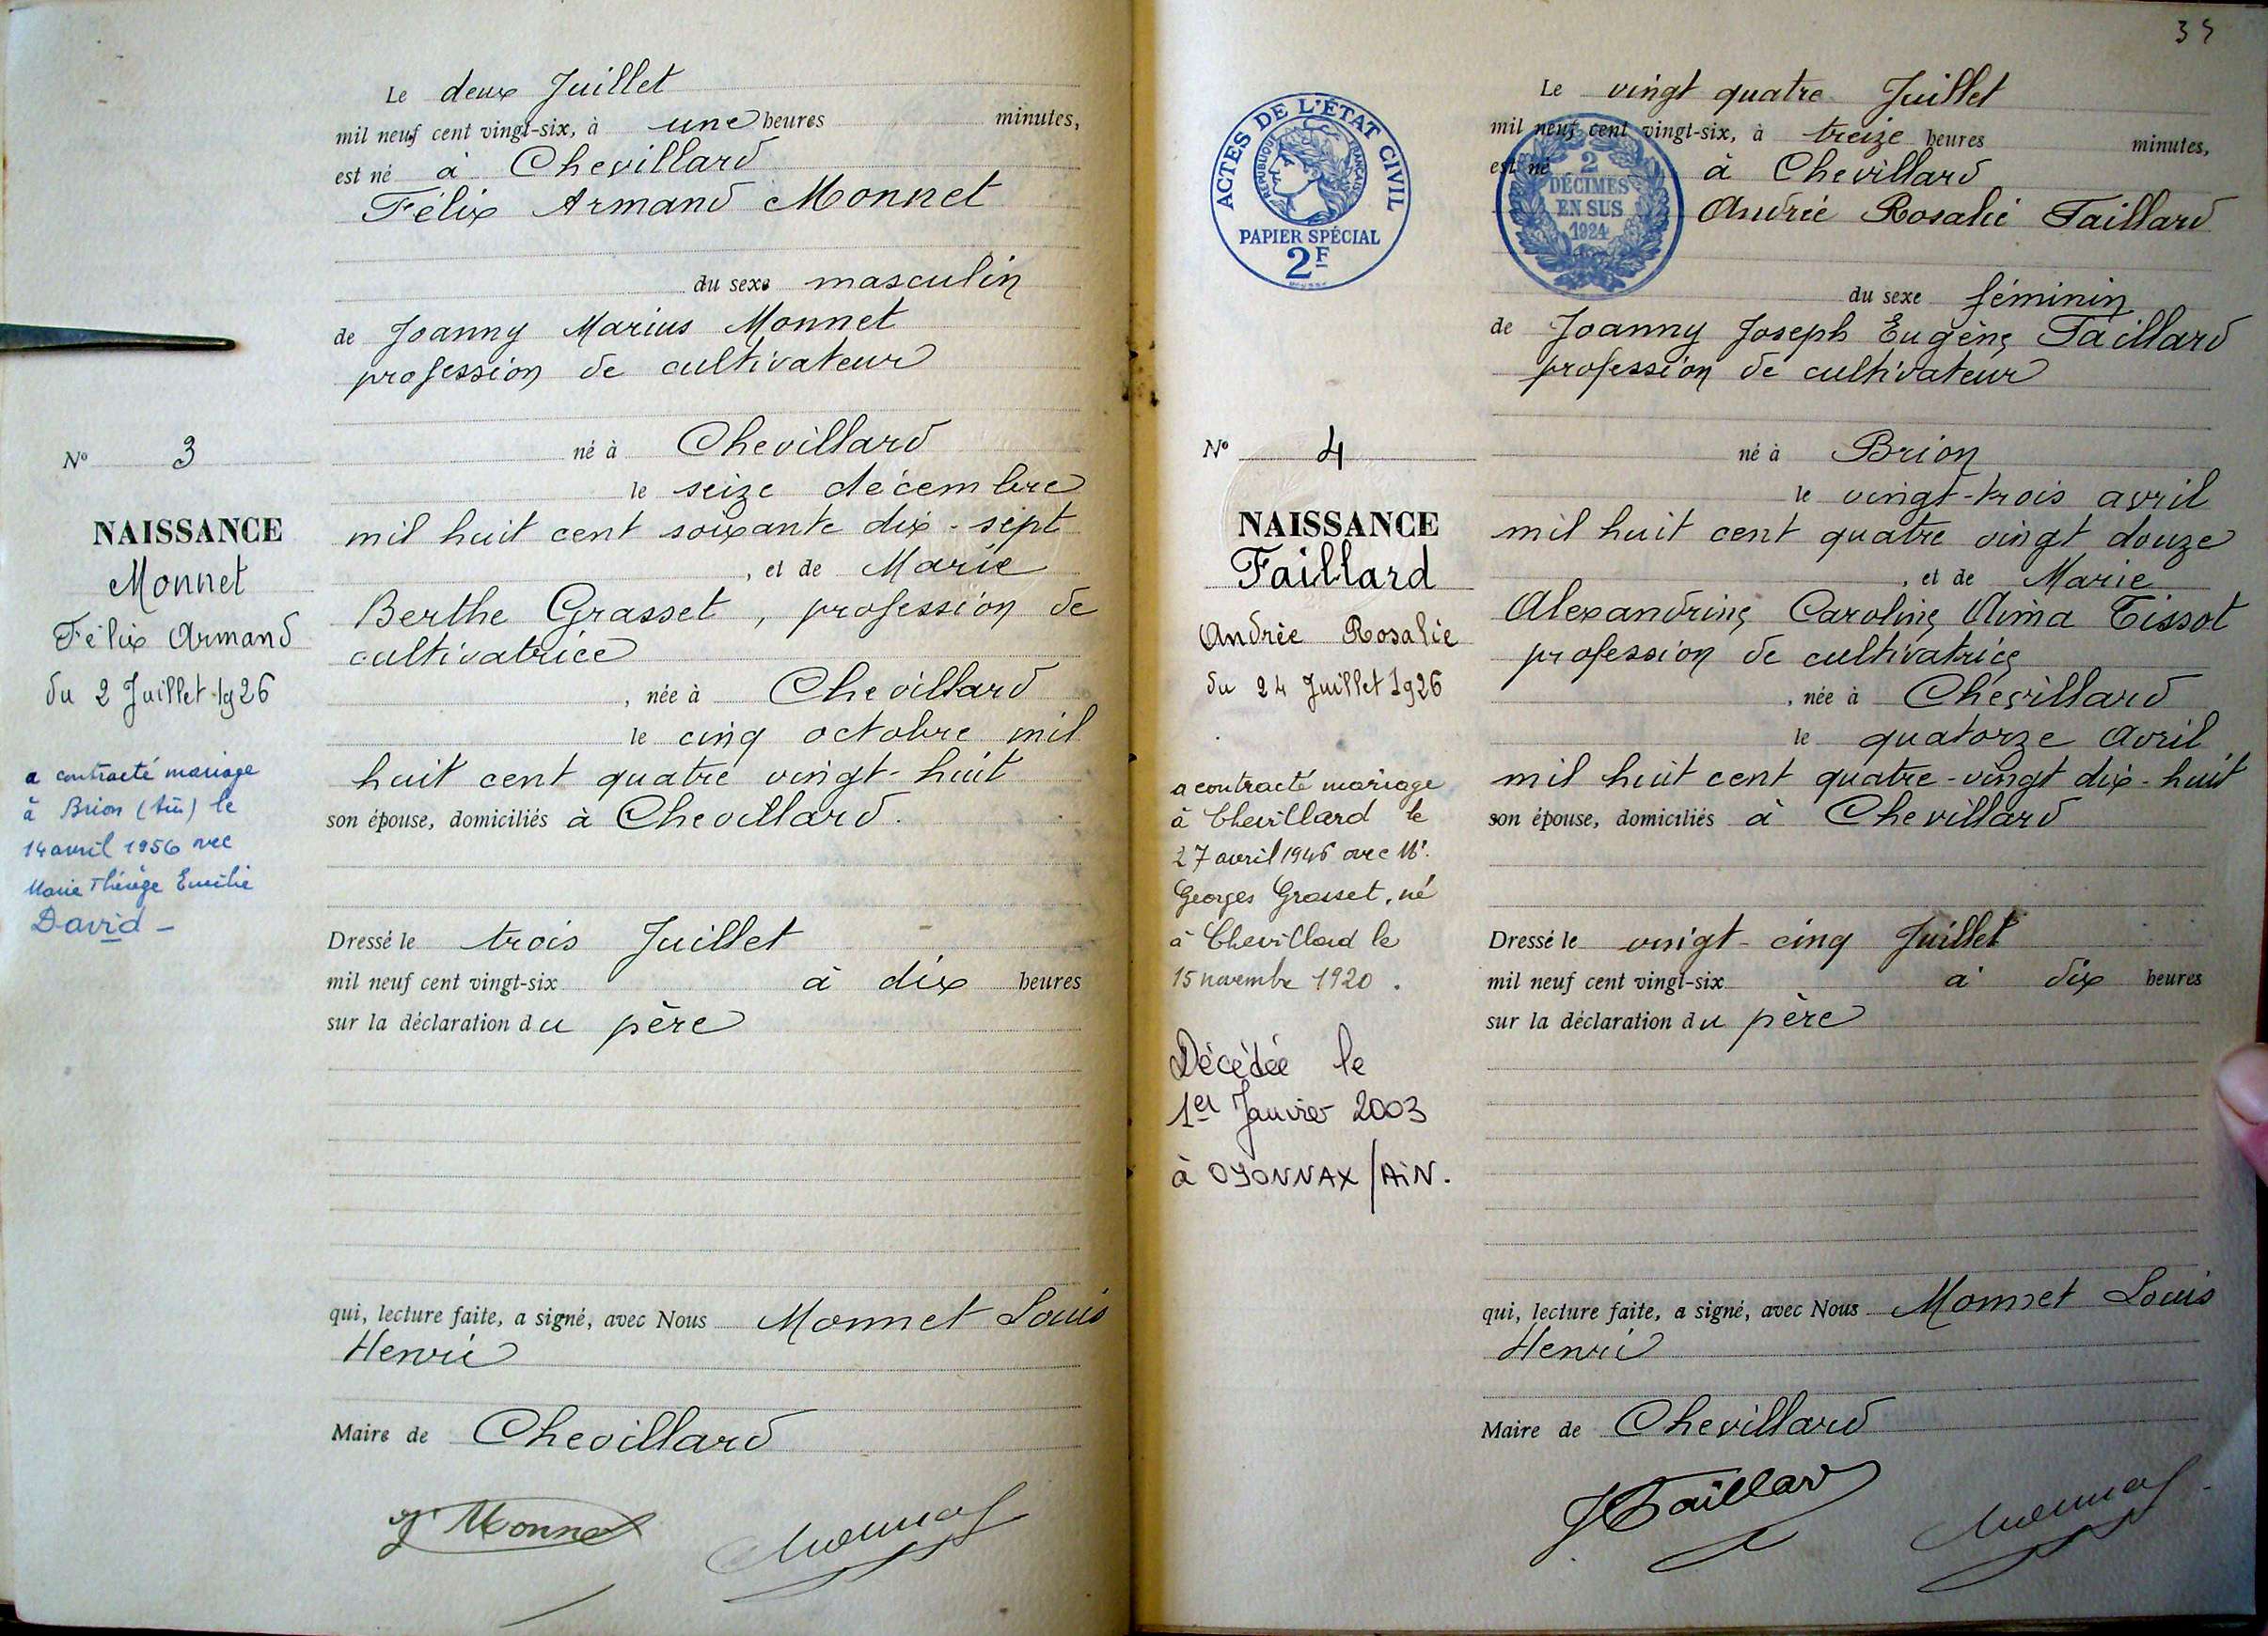 Le deux Juillet
mil neuf cent vingt-six, à une heures minutes,
est né à Chevillard
Félix Armand Monnet
du sexe masculin
de Joanny Marius Monnet
profession de cultivateur
né à Chevillard
le seize décembre
mil huit cent soixante dix-sept
, et de Marie
Berthe Grasset, profession de
cultivatrice
, née à Chevillard
le cinq octobre mil
huit cent quatre vingt-huit
son épouse, domiciliés à Chevillard.
Dressé le trois Juillet
mil neuf cent vingt-six à dix heures
sur la déclaration du père
qui, lecture faite, a signé, avec Nous Monnet Louis
Henri
Maire de Chevillard
J Monnet
N° 3
NAISSANCE
Monnet
Félix Armand
du 2 Juillet 1926
a contracté mariage
à Brion (Ain) le
14 avril 1956 avec
Marie Thérèse Emilie
David -
35
ACTES DE L'ÉTAT CIVIL
RÉPUBLIQUE FRANÇAISE
PAPIER SPÉCIAL
2F
2
DÉCIMES
EN SUS
1924
N° 4
NAISSANCE
Taillard
Andrée Rosalie
du 24 Juillet 1926
a contracté mariage
à Chevillard le
27 avril 1946 avec Mr.
Georges Grasset, né
à Chevillard le
15 novembre 1920.
Décédée le
1er Janvier 2003
à OYONNAX/AiN.
Le vingt quatre Juillet
mil neuf cent vingt-six, à treize heures minutes,
est né à Chevillard
Andrée Rosalie Taillard
du sexe féminin
de Joanny Joseph Eugène Taillard
profession de cultivateur
né à Brion
le vingt-trois avril
mil huit cent quatre vingt douze
, et de Marie
Alexandrine Caroline Alima Tissot
profession de cultivatrice
, née à Chevillard
le quatorze Avril
mil huit cent quatre-vingt dix-huit
son épouse, domiciliés à Chevillard
Dressé le vingt-cinq Juillet
mil neuf cent vingt-six à dix heures
sur la déclaration du père
qui, lecture faite, a signé, avec Nous Monnet Louis
Henri
Maire de Chevillard
J Taillard